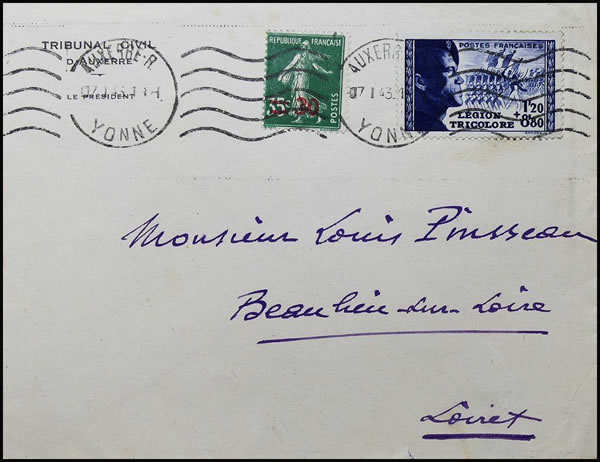 TRIBUNAL CIVIL
D'AUXERRE
LE PRÉSIDENT
AUXERRE-R.P.
YONNE
RÉPUBLIQUE FRANÇAISE
30
POSTES
AUXERR
07 1 43
YONNE
POSTES FRANÇAISES
1F20
+8F80
LÉGION
TRICOLORE
Monsieur Louis Pinsseau
Beaulieu-sur-Loire
Loiret